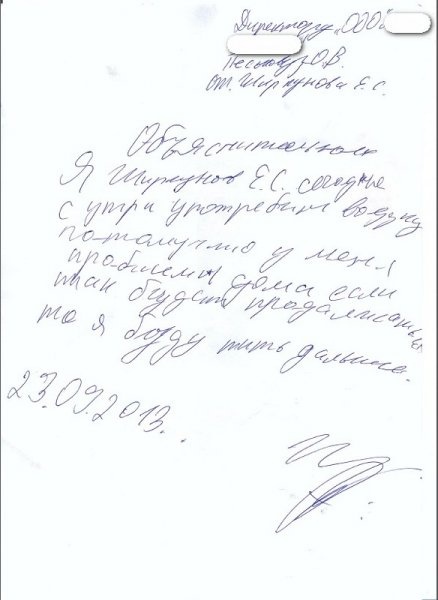 Директору "ООО
О.В.
от Ширкунова Е.С.
Объяснительная
Я Ширкунов Е.С. сегодне
с утри употребил водку
потомучмо у меня
проблемы дома если
так будет продалжаться
то я буду пить дальше.
23.09.2013.